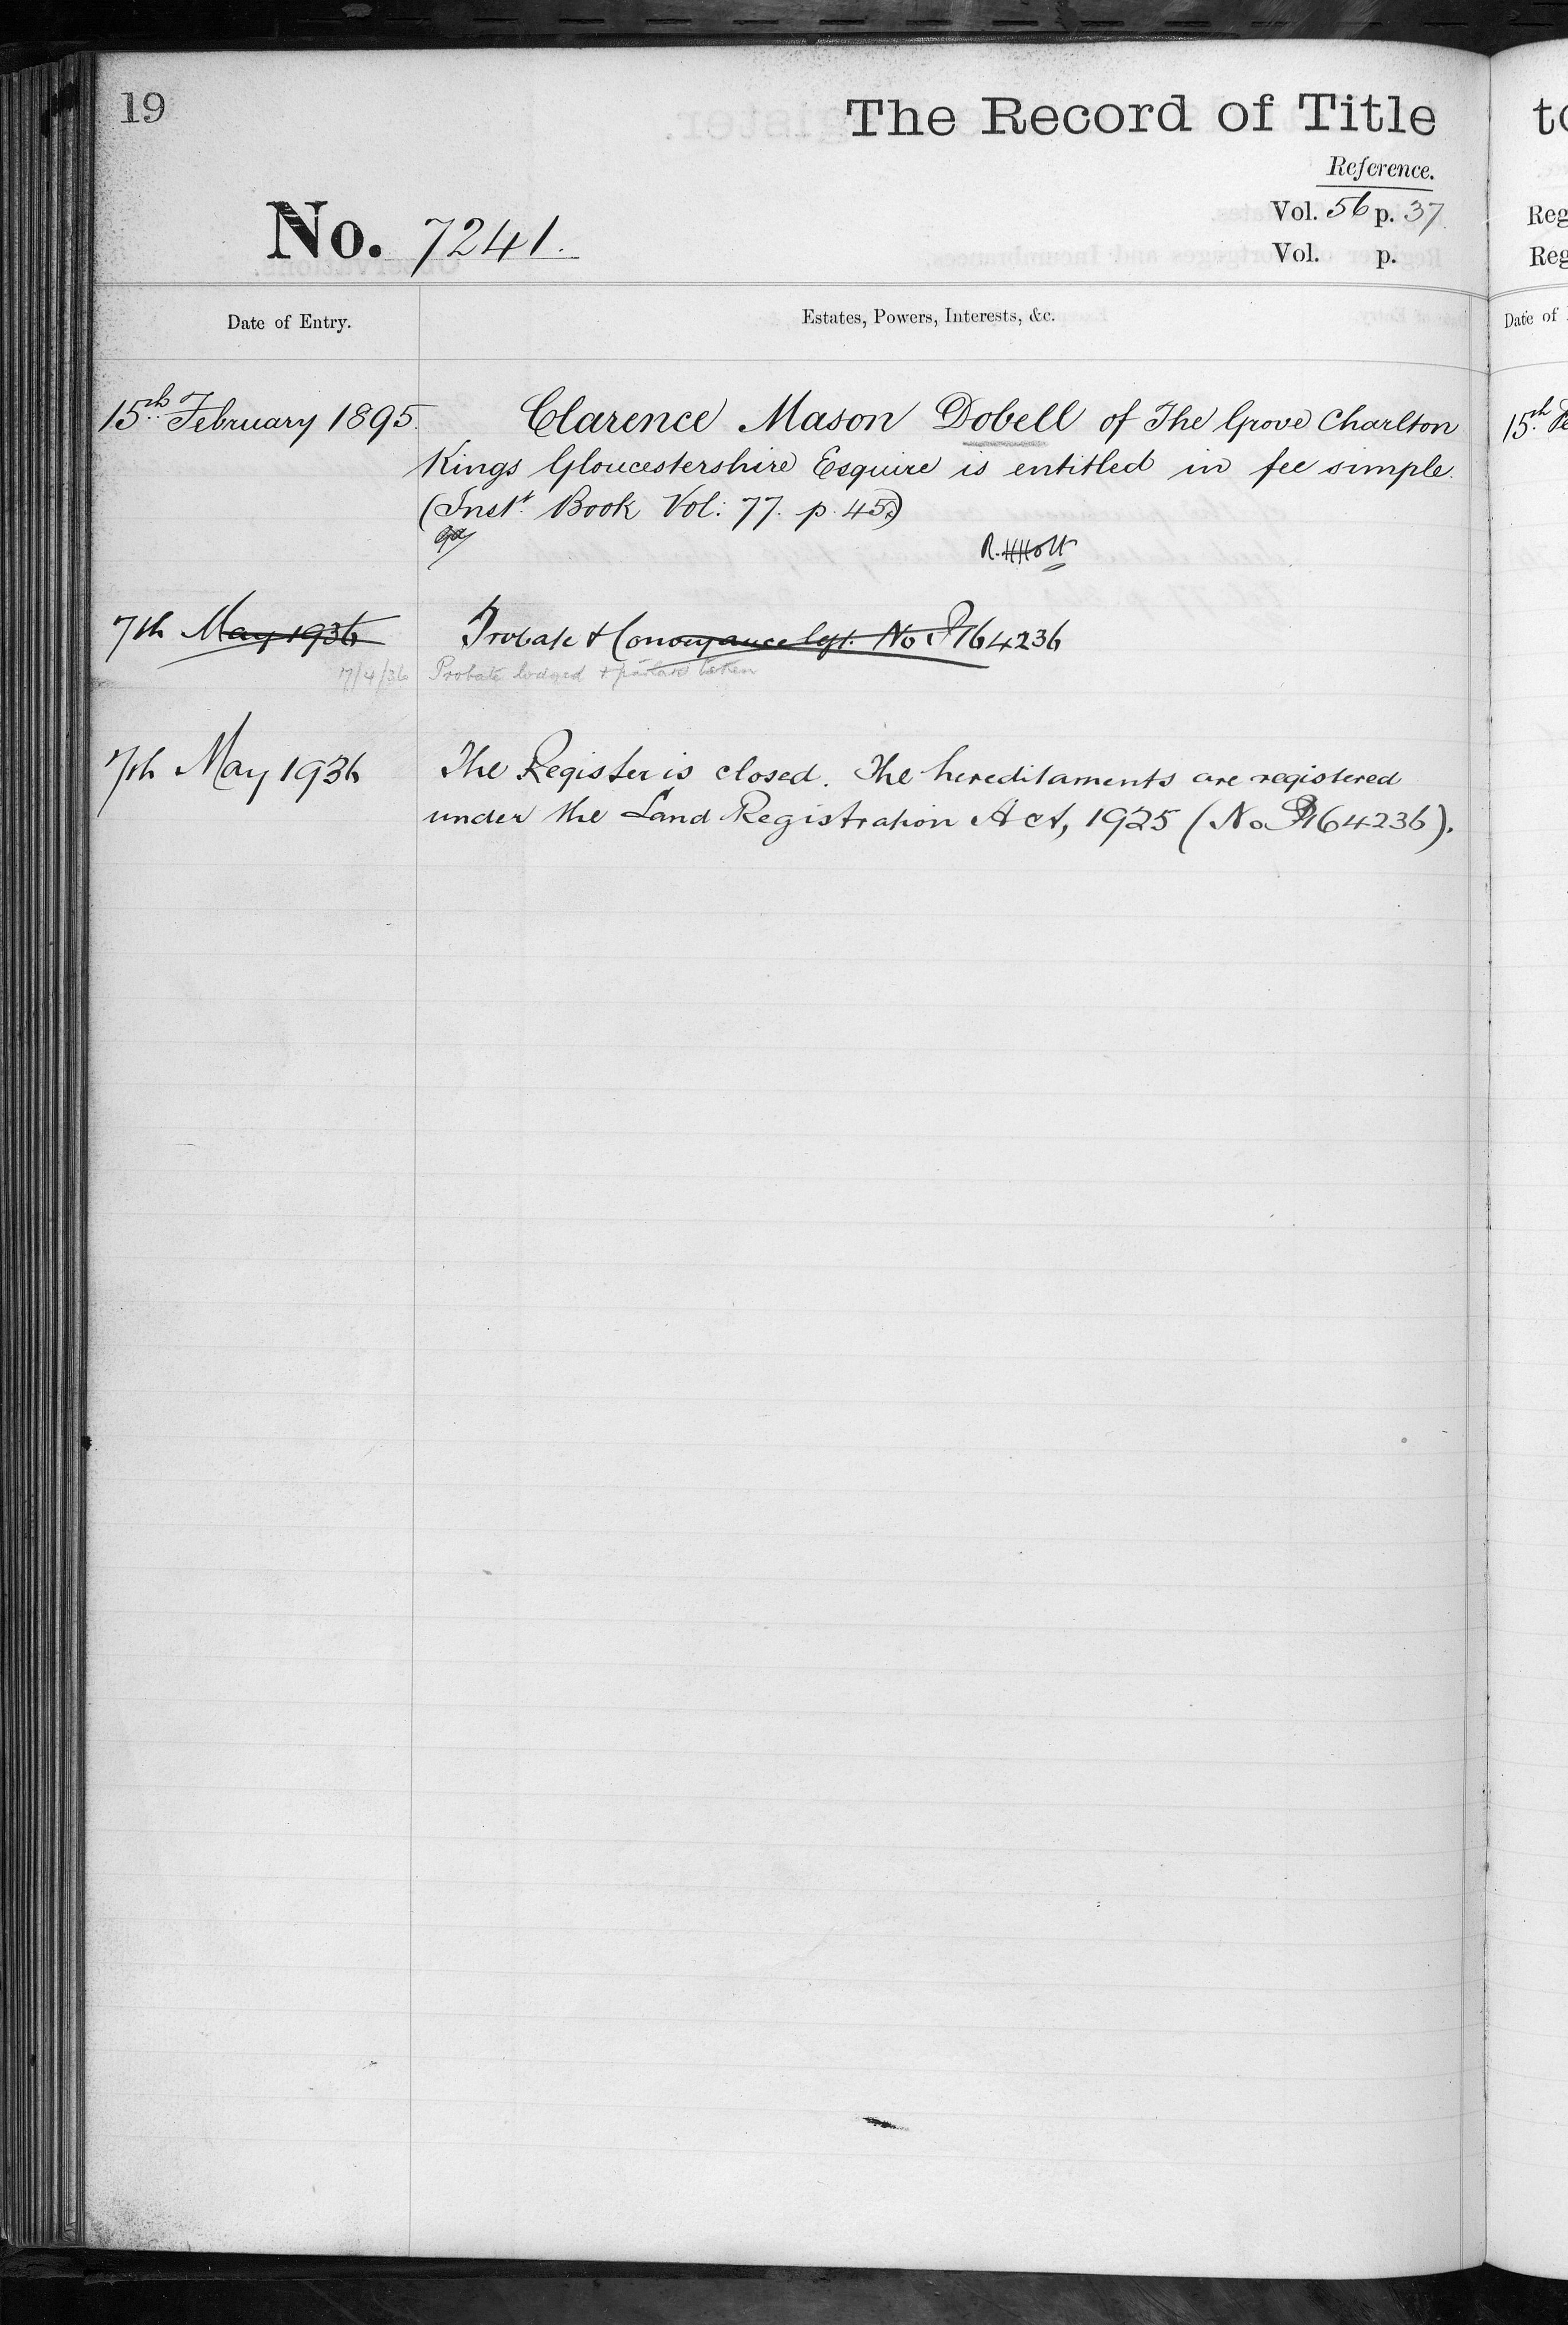 19
The Record of Title
Reference.
No. 7241.
Vol. 56 p. 37.
Vol. p.
Date of Entry.
Estates, Powers, Interests, &c.
15th February 1895.
Clarence Mason Dobell of The Grove Charlton
Kings Gloucestershire Esquire is entitled in fee simple.
(Inst. Book Vol: 77. p. 45.)
R. H Holt
7th May 1936
Probate & Conveyance No P164236
17/4/36
Probate lodged & taken
7th May 1936
The Register is closed. The hereditaments are registered
under the Land Registration Act, 1925 (No P164236).
to
Reg
Reg
Date of
15th Fe